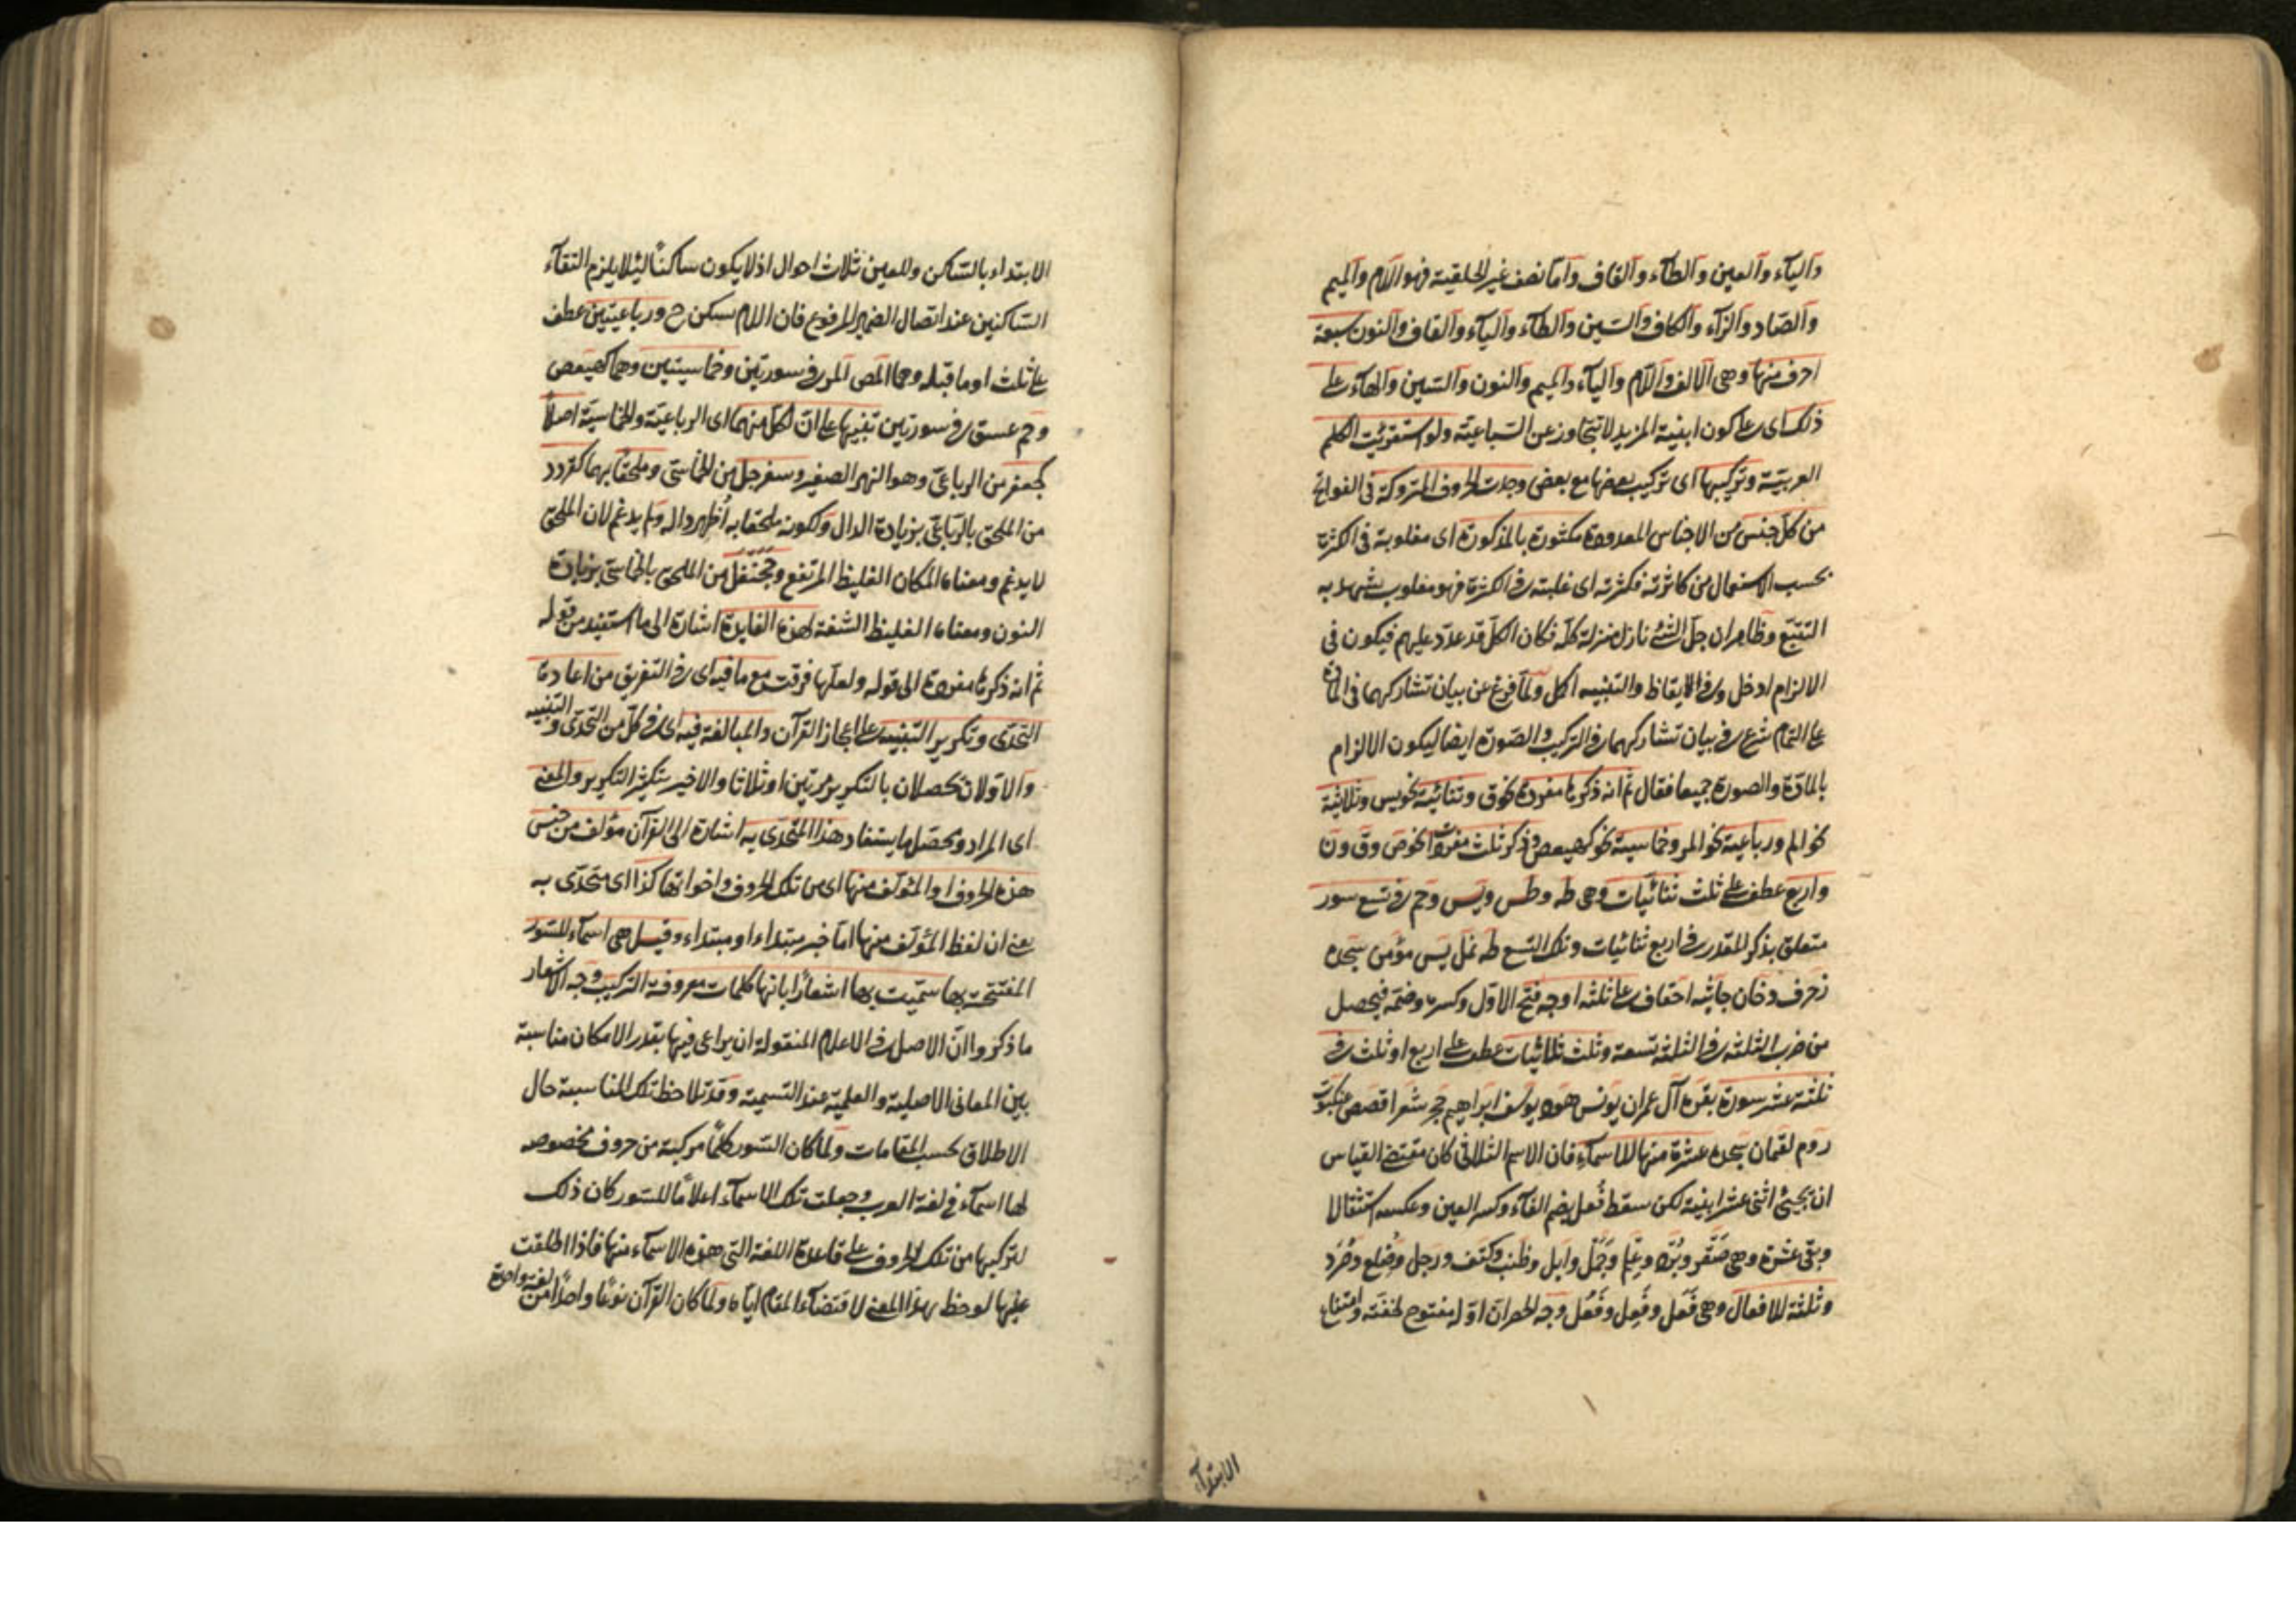 والياء والعين والطاء والقاف واما نصف غير الحلقية فهو اللام والميم
والصاد والراء والكاف والسين والطاء والياء والقاف والنون سبعة
احرف منها وهى الالف واللام والياء والميم والنون والسين والهاء على
ذلك اى على كون ابنية المزيد لا تتجاوز عن السباعية ولو استقريت الكلم
العربية وتركيبها اى تركيب بعضها مع بعض وجدت الحروف المتروكة فى الفواتح
من كل جنس من الاجناس المعدودة مكثورة بالمذكورة اى مغلوبة فى الكثرة
بحسب الاستعمال من كاثرته فكثرته اى غلبته فى الكثرة فهو مغلوب يشهد به
التتبع وظاهر ان جل الشئ نازل منزلة كله فكان الكل قد عدد عليهم فيكون فى
الالزام ادخل وفى الايقاظ والتنبيه اكمل ولما فرغ عن بيان تشاركهما فى المادة
على التمام شرع فى بيان تشاركهما فى التركيب والصورة ايضا ليكون الالزام
بالمادة والصورة جميعا فقال ثم انه ذكرها مفردة نحو ق وثنائية نحو يس وثلاثية
نحو الم ورباعية نحو المر وخماسية نحو كهيعص وذكر ثلث مفردات نحو ص وق ون
واربع عطف على ثلث ثنائيات وهى طه وطس ويس وحم فى تسع سور
متعلق بذكر المقدر فى اربع ثنائيات وتلك التسع طه نمل يس مؤمن سجده
زخرف دخان جاثيه احقاف على ثلثه اوجه فتح الاول وكسره وضمه فيحصل
من ضرب الثلثه فى الثلثه تسعة وثلث ثلاثيات عطف على اربع او ثلث فى
ثلثة عشر سورة بقره آل عمران يونس هود يوسف ابراهيم حجر شعرا قصص عنكبوت
روم لقمان سجده عشرة منها للاسماء فان الاسم الثلاثى كان مقتضى القياس
ان يجيئ اثنى عشر ابنية لكن سقط فُعِل بضم الفاء وكسر العين وعكسه استثقالا
وبقى عشرة وهى صقر وبرد وعلم وجمل وابل وطنب وكتف ورجل وضلع وصرد
وثلثة للافعال وهى فَعَل وفَعِل وفَعُل وجه الحصر ان اوله مفتوح لخفته وامتناع
الابتدآء
الابتداء بالساكن وللعين ثلاث احوال اذ لا يكون ساكنا لئلا يلزم التقآء
الساكنين عند اتصال الضمير المرفوع فان اللام سكن ح ورباعيتين عطف
على ثلث او ما قبله وهما المص المر فى سورتين وخماسيتين وهما كهيعص
وحم عسق فى سورتين تنبيها على ان لكل منهما اى الرباعية والخماسية اصلا
كجعفر من الرباعى وهو النهر الصغير وسفرجل من الخماسى وملحقا بهما كقردد
من الملحق بالرباعى بزيادة الدال ولكونه ملحقا به اظهر داله ولم يدغم لان الملحق
لا يدغم ومعناه المكان الغليظ المرتفع وجحنفل من الملحق بالخماسى بزيادة
النون ومعناه الغليظ الشفة لهذه الفايدة اشارة الى ما استفيد من قوله
ثم انه ذكرها مفردة الى قوله ولعلها فرقت مع ما فيه اى فى التفريق من اعادة
التحدى وتكرير التنبيه على اعجاز القرآن والمبالغة فيه اى فى كل من التحدى والتنبيه
والاولان تحصلان بالتكرير مرتين او ثلاثا والاخير بتكثير التكرير والمعنى
اى المراد ومحصل ما يستفاد هذا المتحدى به اشارة الى القرآن مؤلف من جنس
هذه الحروف او المؤلف منها اى من تلك الحروف واخواتها كذا اى متحدى به
يعنى ان لفظ المؤلف منها اما خبر مبتداء او مبتداء وقيل هى اسماء للسور
المفتتحة بها سميت بها اشعارا بانها كلمات معروفة التركيب وجه الاشعار
ما ذكروا ان الاصل فى الاعلام المنقولة ان يراعى فيها بقدر الامكان مناسبة
بين المعانى الاصلية والعلمية عند التسمية وقد تلاحظ تلك المناسبة حال
الاطلاق بحسب المقامات ولما كان السور كلما مركبة من حروف مخصوصه
لها اسماء فى لغة العرب وجعلت تلك الاسماء اعلاما للسور كان ذلك
لتركيبها من تلك الحروف على قاعدة اللغة التى هذه الاسماء منها فاذا اطلقت
عليها لوحظ هذا المعنى لاقتضاء المقام اياه ولما كان القرآن نوعا واحدا من لغة واحدة